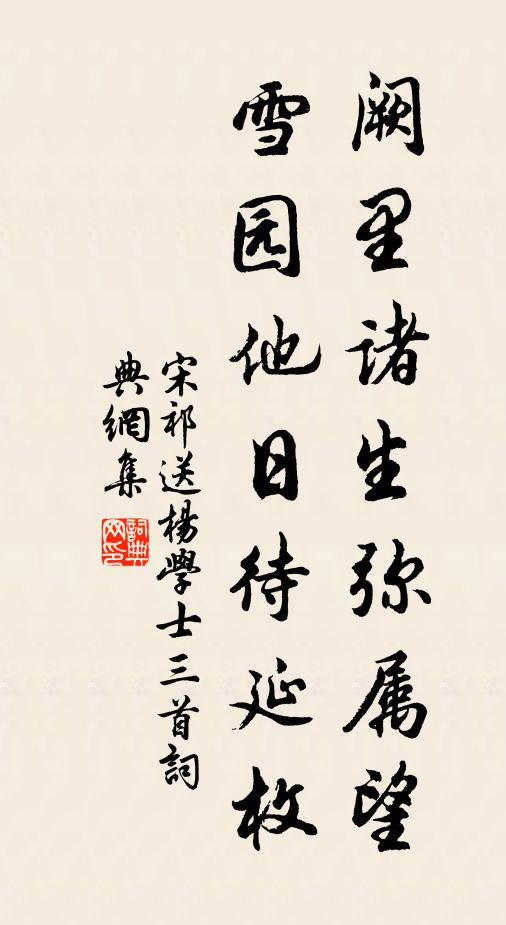 阙里诸生弥属望
雪园他日待延枚
宋祁送楊學士三首詞
典網集
詞典網印